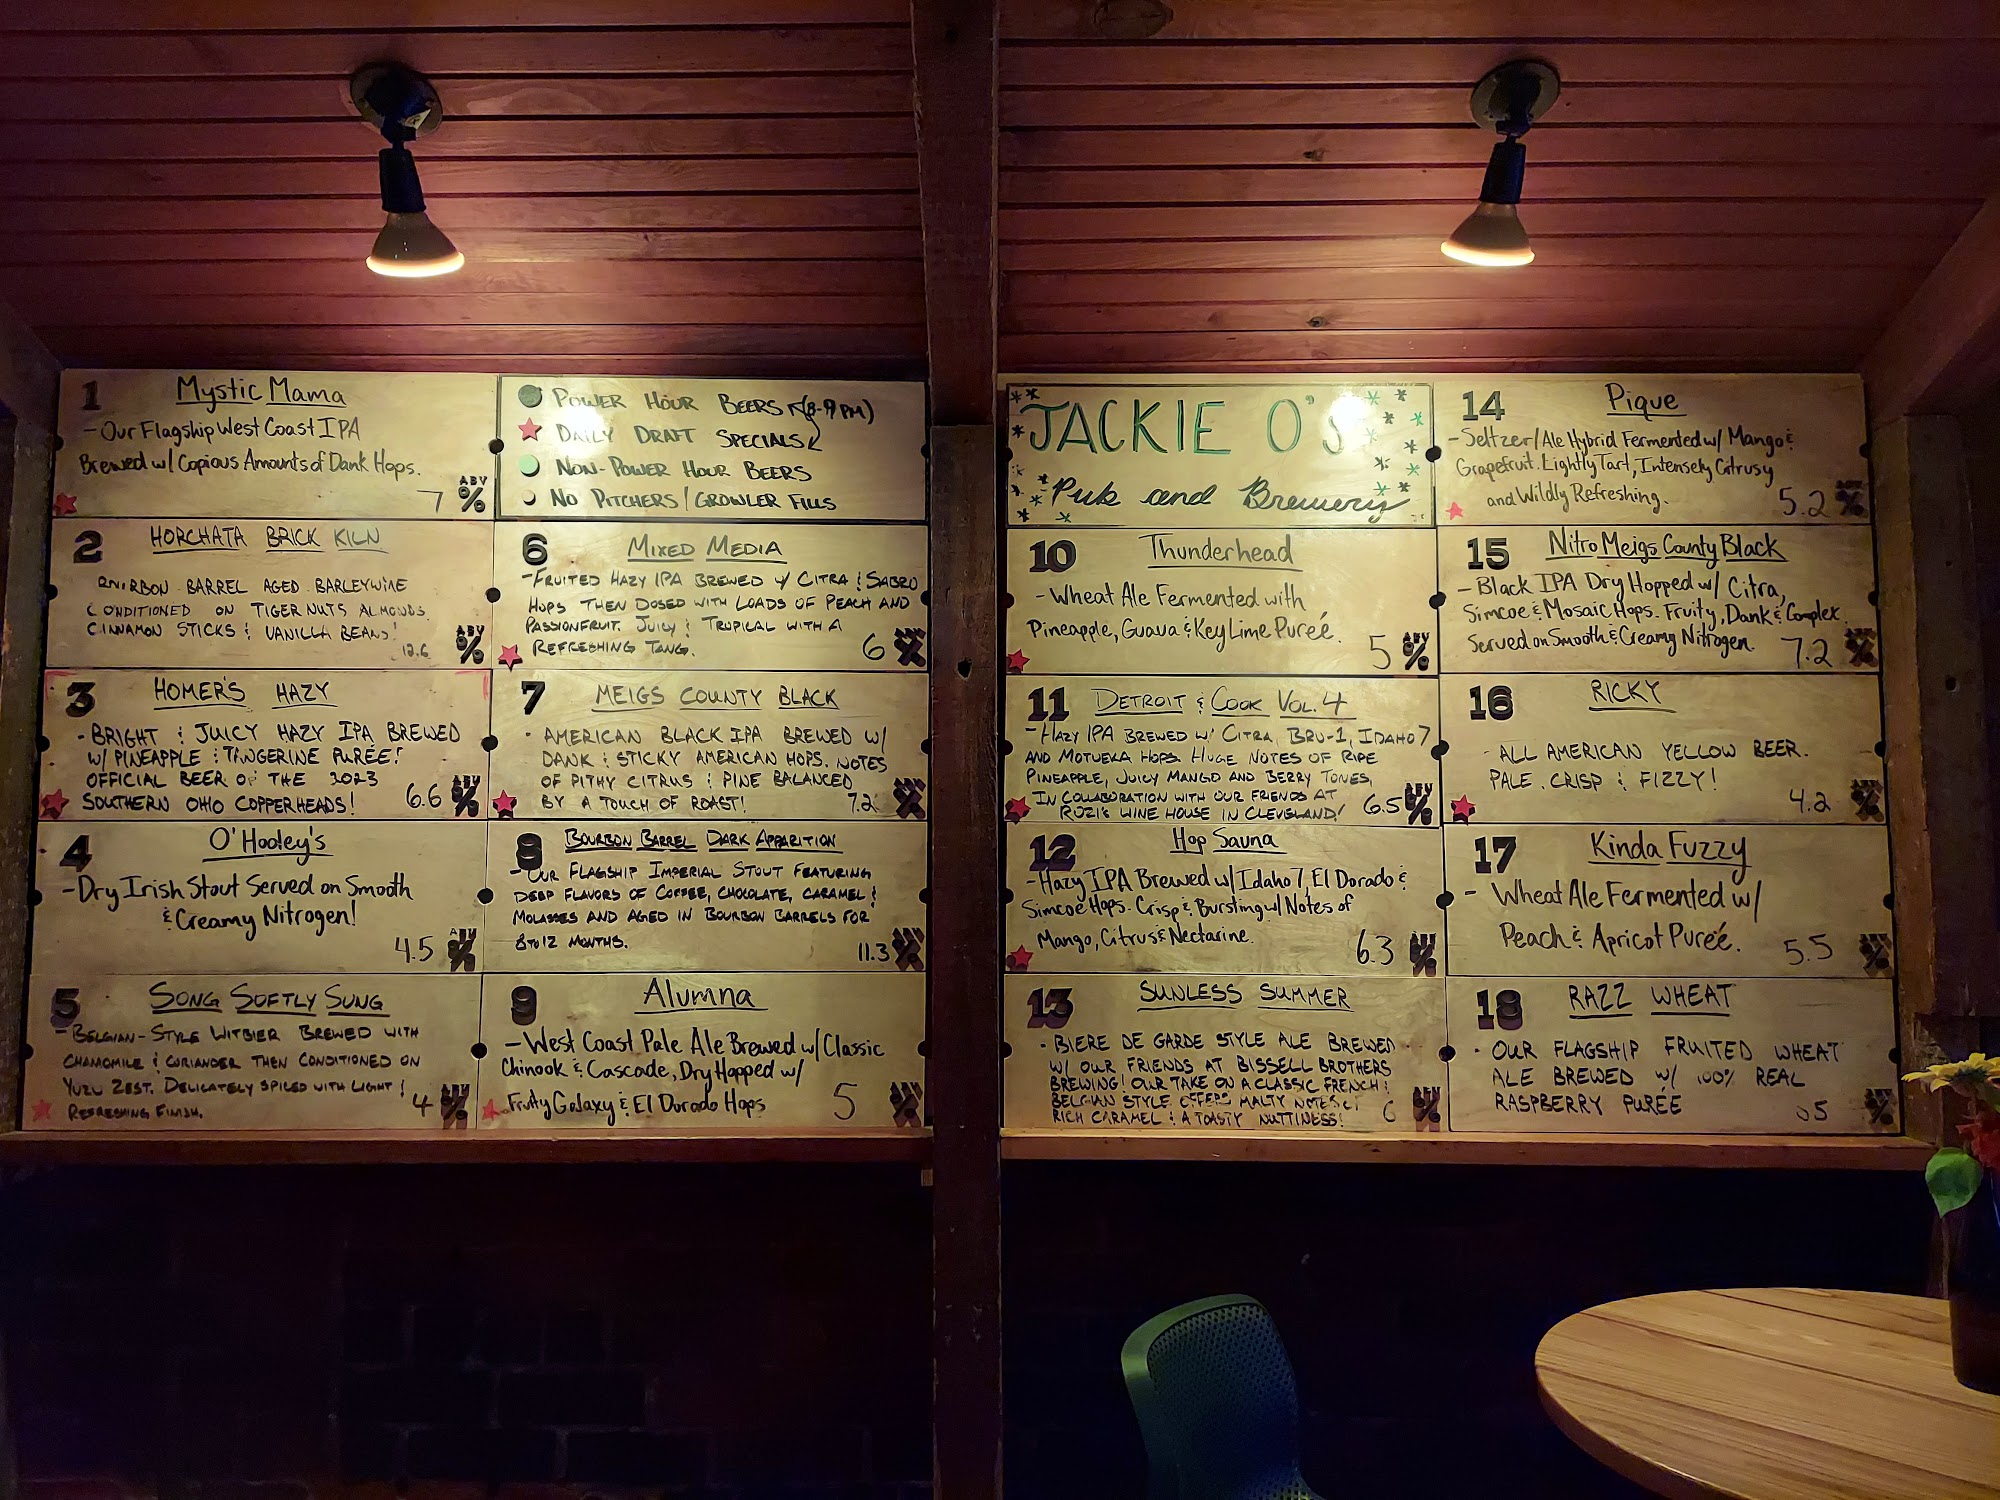 1 Mystic Mama
- Our Flagship West Coast IPA
Brewed w/ Copious Amounts of Dank Hops.
7 ABV %
2 HORCHATA BRICK KILN
BOURBON BARREL AGED BARLEYWINE
CONDITIONED ON TIGER NUTS ALMONDS
CINNAMON STICKS & VANILLA BEANS!
12.6 ABV %
3 HOMER'S HAZY
- BRIGHT & JUICY HAZY IPA BREWED
W/ PINEAPPLE & TANGERINE PURÉE!
OFFICIAL BEER OF THE 2023
SOUTHERN OHIO COPPERHEADS!
6.6 ABV %
4 O'Hooley's
- Dry Irish Stout Served on Smooth
& Creamy Nitrogen!
4.5 ABV %
5 SONG SOFTLY SUNG
- BELGIAN-STYLE WITBIER BREWED WITH
CHAMOMILE & CORIANDER THEN CONDITIONED ON
YUZU ZEST. DELICATELY SPICED WITH LIGHT &
REFRESHING FINISH.
4 ABV %
POWER HOUR BEERS (8-9 PM)
DAILY DRAFT SPECIALS
NON-POWER HOUR BEERS
NO PITCHERS/GROWLER FILLS
6 MIXED MEDIA
- FRUITED HAZY IPA BREWED W/ CITRA & SABRO
HOPS THEN DOSED WITH LOADS OF PEACH AND
PASSIONFRUIT. JUICY & TROPICAL WITH A
REFRESHING TANG.
6 ABV %
7 MEIGS COUNTY BLACK
- AMERICAN BLACK IPA BREWED W/
DANK & STICKY AMERICAN HOPS. NOTES
OF PITHY CITRUS & PINE BALANCED
BY A TOUCH OF ROAST!
7.2 ABV %
8 BOURBON BARREL DARK APPARITION
- OUR FLAGSHIP IMPERIAL STOUT FEATURING
DEEP FLAVORS OF COFFEE, CHOCOLATE, CARAMEL &
MOLASSES AND AGED IN BOURBON BARRELS FOR
8 TO 12 MONTHS.
11.3 ABV %
9 Alumna
- West Coast Pale Ale Brewed w/ Classic
Chinook & Cascade, Dry Hopped w/
Fruity Galaxy & El Dorado Hops
5 ABV %
JACKIE O'S
Pub and Brewery
10 Thunderhead
- Wheat Ale Fermented with
Pineapple, Guava & Key Lime Pureé.
5 ABV %
11 DETROIT & COOK VOL. 4
- HAZY IPA BREWED W/ CITRA, BRU-1, IDAHO 7
AND MOTUEKA HOPS. HUGE NOTES OF RIPE
PINEAPPLE, JUICY MANGO AND BERRY TONES,
IN COLLABORATION WITH OUR FRIENDS AT
ROZI'S WINE HOUSE IN CLEVELAND!
6.5 ABV %
12 Hop Sauna
- Hazy IPA Brewed w/ Idaho 7, El Dorado &
Simcoe Hops. Crisp & Bursting w/ Notes of
Mango, Citrus & Nectarine.
6.3 ABV %
13 SUNLESS SUMMER
- BIERE DE GARDE STYLE ALE BREWED
W/ OUR FRIENDS AT BISSELL BROTHERS
BREWING! OUR TAKE ON A CLASSIC FRENCH &
BELGIAN STYLE OFFERS MALTY NOTES OF
RICH CARAMEL & A TOASTY NUTTINESS!
6 ABV %
14 Pique
- Seltzer/Ale Hybrid Fermented w/ Mango &
Grapefruit. Lightly Tart, Intensely Citrusy
and Wildly Refreshing.
5.2 ABV %
15 Nitro Meigs County Black
- Black IPA Dry Hopped w/ Citra,
Simcoe & Mosaic Hops. Fruity, Dank & Complex.
Served on Smooth & Creamy Nitrogen.
7.2 ABV %
16 RICKY
- ALL AMERICAN YELLOW BEER.
PALE, CRISP & FIZZY!
4.2 ABV %
17 Kinda Fuzzy
- Wheat Ale Fermented w/
Peach & Apricot Pureé.
5.5 ABV %
18 RAZZ WHEAT
- OUR FLAGSHIP FRUITED WHEAT
ALE BREWED W/ 100% REAL
RASPBERRY PURÉE
ABV %